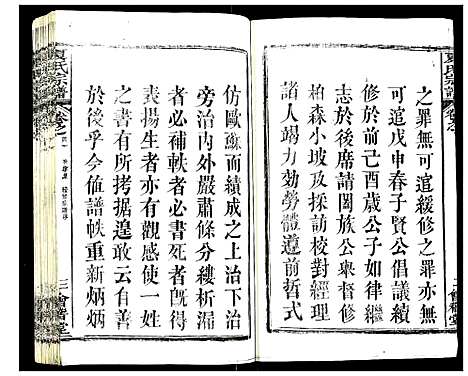 夏氏宗譜
之罪無可逭緩修之罪亦無
可逭戊申春子賢公倡議續
修於前己酉歲公子如律繼
志於後席請闔族公舉督修
柏森小坡及採訪校對經理
諸人竭力効勞體遵前哲式
仿歐蘇而續成之上治下治
旁治內外嚴肅條分縷析漏
者必補軼者必書死者旣得
表揚生者亦可觀感使一姓
之書有所考據遑敢云自善
於後乎今值譜帙重新炳炳
夏氏宗譜
卷之